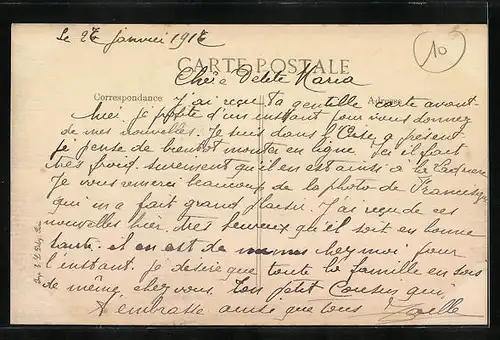 Le 27 Janvier 1917
10
CARTE POSTALE
Chère Petite Maria
Correspondance Adresse
J'ai reçu ta gentille carte avant-
hier. je profite d'un instant pour vous donner
de mes nouvelles. Je suis dans l'Oise a présent
je pense de bientot monter en ligne. Ici il fait
très froid. surement qu'il en est ainsi à la
Je vous remerci beaucoup de la photo de
qui m'a fait grand plaisir. J'ai reçu de ces
nouvelles hier, très heureux qu'il soit en bonne
santé. et en est de même chez moi pour
l'instant. je désire que toute la famille en sois
de même chez vous. Ton petit Cousin qui
t'embrasse ainsi que tous